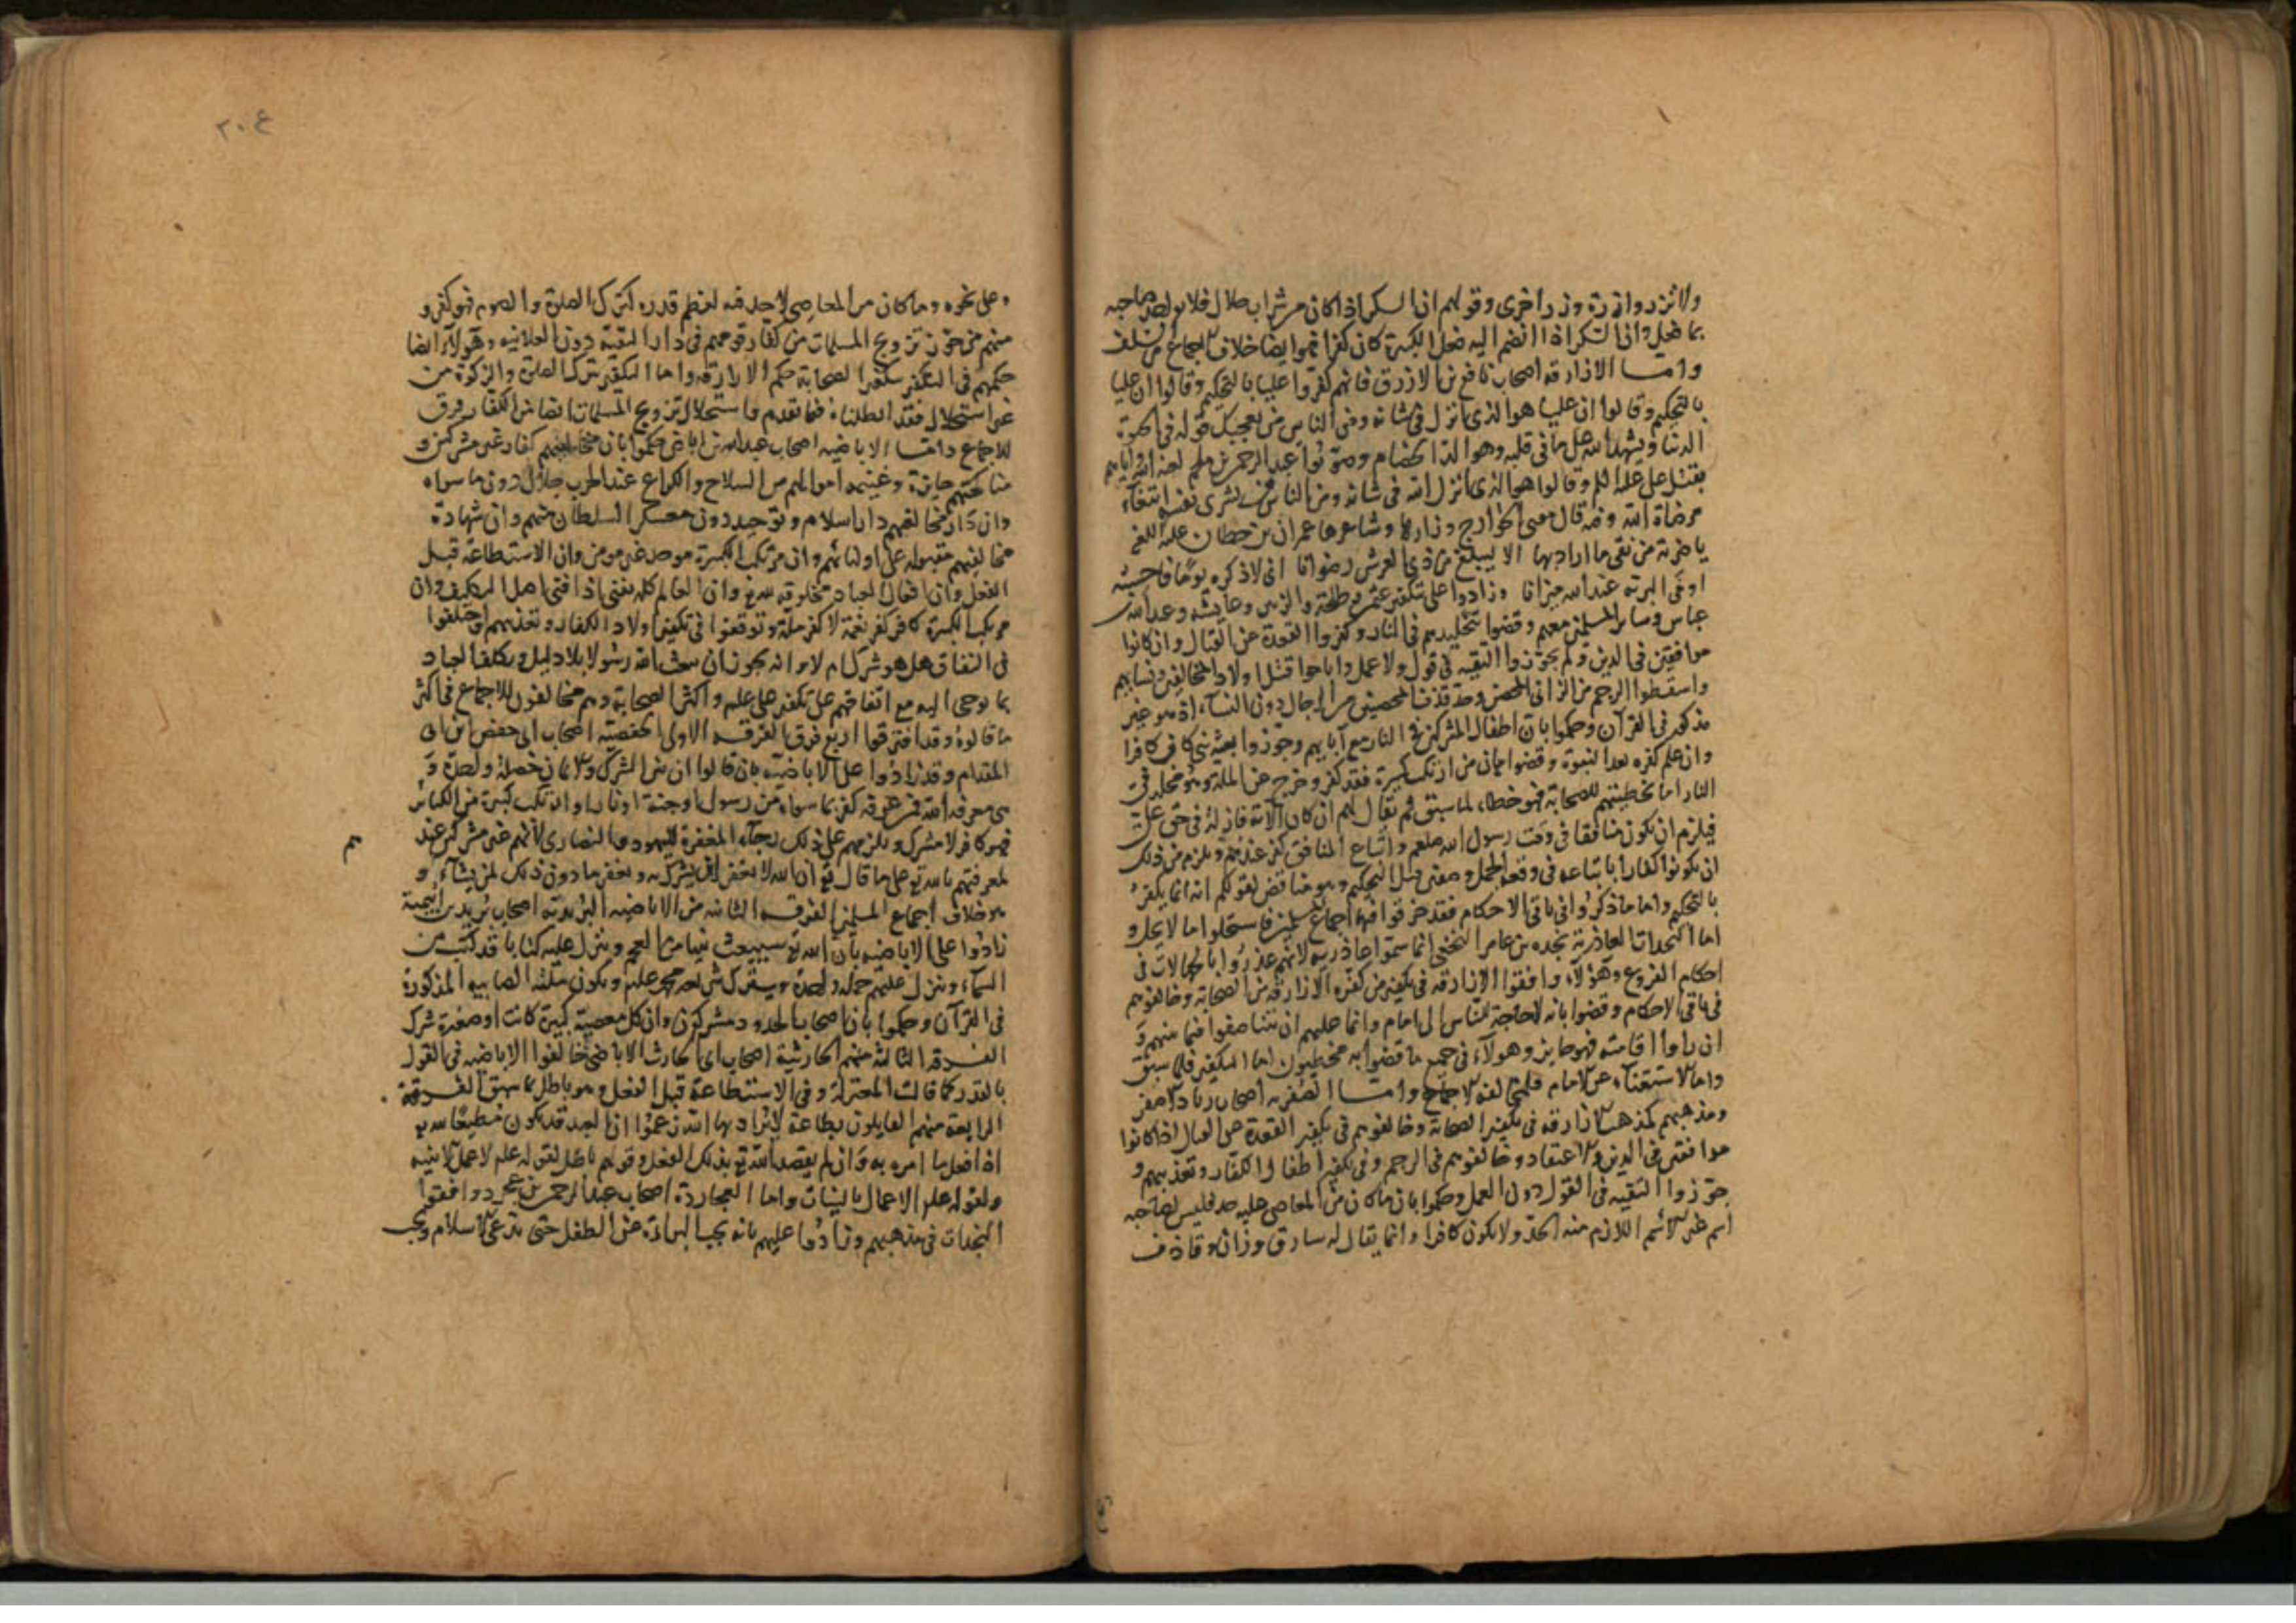 ولا تزر وازرة وزر اخرى وقولهم ان السكر اذا كان من شراب حلال فلا يؤاخذ صاحبه
بما فعل وان السكر اذا انضم اليه فعل الكبيرة كان كفرا فهو ايضا خلاف الاجماع من السلف
واما الازارقة اصحاب نافع بن الازرق فانهم كفروا عليا بالتحكيم وقالوا ان عليا
بالتحكيم وقالوا ان عليا هو الذى انزل فى شانه ومن الناس من يعجبك قوله فى الحيوة
الدنيا ويشهد الله على ما فى قلبه وهو الد الخصام وصوبوا عبد الرحمن بن ملجم لعنه الله واياهم
بقتل على علم وقالوا هو الذى انزل الله فى شانه ومن الناس من يشرى نفسه ابتغاء
مرضاة الله وفيه قال مفتى الخوارج وزاهدها وشاعرها عمران بن حطان عليه اللعن
يا ضربة من تقى ما اراد بها الا ليبلغ من ذى العرش رضوانا انى لاذكره يوما فاحسبه
اوفى البرية عند الله ميزانا وزادوا على تكفير عثمن وطلحة والزبير وعايشة وعبد الله بن
عباس وساير المسلمين معهم وقضوا بتخليدهم فى النار وكفروا القعدة عن القتال وان كانوا
موافقين فى الدين ولم يجوزوا التقية فى قول ولا عمل واباحوا قتل اولاد المخالفين ونسايهم
واسقطوا الرجم عن الزانى المحصن وحد قذف المحصنين من الرجال دون النساء اذ هو غير
مذكور فى القرآن وحكموا بان اطفال المشركين فى النار مع آبايهم وجوزوا بعثة نبى كان كافرا
وان علم كفره بعد النبوة وقضوا بان من ارتكب كبيرة فقد كفر وخرج عن الملة وهو مخلد فى
النار اما تخطيتهم للصحابة فهو خطاء لما سبق ثم يقال لهم ان كان الآية نازلة فى حق على
فيلزم ان يكون منافقا فى وقت رسول الله صلعم واتباع المنافق كفر عندهم ويلزم من ذلك
ان يكونوا كفارا باتباعه فى وقعة الجمل وصفين قبل التحكيم وهو مناقض لقولكم انه انما يكفر
بالتحكيم واما ما ذكروا فى باقى الاحكام فقد خرقوا فيها اجماع المسلمين فاستحلوا ما لا يحل و
اما النجدات العاذرية نجدة بن عامر النخعى انما سموا عاذرية لانهم عذروا بالجهالات فى
احكام الفروع وهؤلاء وافقوا الازارقة فى تكفير من كفره الازارقة من الصحابة وخالفوهم
فى باقى الاحكام وقضوا بانه لا حاجة للناس الى امام وانما عليهم ان يتناصفوا فيما بينهم و
ان راوا اقامته فهو جايز وهولاء فى جميع ما قضوا به مخطيون اما التكفير فلما سبق
واما الاستغناء عن الامام فلمخالفة الاجماع واما الصفرية اصحاب زياد الاصفر
ومذهبهم كمذهب الازارقة فى تكفير الصحابة وخالفوهم فى تكفير القعدة عن القتال اذا كانوا
موافقين فى الدين والاعتقاد وخالفوهم فى الرجم وفى تكفير اطفال الكفار وتعذيبهم و
جوزوا التقية فى القول دون العمل وحكموا بان ما كان من المعاصى عليه حد فليس لصاحبه
اسم غير الاسم اللازم منه الحد ولا يكون كافرا وانما يقال له سارق وزان وقاذف
٢٠٤
وعلى نحوه وما كان من المعاصى لا حد فيه لعظم قدره كترك الصلوة والصوم فهو كفر و
منهم من جوز تزويج المسلمات من كفار قومهم فى دار التقية دون العلانية وهولاء ايضا
حكمهم فى التكفير بتكفير الصحابة حكم الازارقة واما التكفير بترك الصلوة والزكوة من
غير استحلال فقد ابطلناه فيما تقدم واستحلال تزويج المسلمات ايضا من الكفار خرق
للاجماع واما الاباضية اصحاب عبد الله بن اباض حكموا بان مخالفيهم كفار غير مشركين و
مناكحتهم جايزة وغنيمة اموالهم من السلاح والكراع عند الحرب حلال دون ما سواه
وان دار مخالفيهم دار اسلام وتوحيد دون معسكر السلطان منهم وان شهادة
مخالفيهم مقبولة على اوليائهم وان مرتكب الكبيرة موحد غير مومن وان الاستطاعة قبل
الفعل وان افعال العباد مخلوقة لله تع وان العالم كله يفنى اذا فنى اهل التكليف وان
مرتكب الكبيرة كافر كفر نعمة لا كفر ملة وتوقفوا فى تكفير اولاد الكفار وتعذيبهم واختلفوا
فى النفاق هل هو شرك ام لا وانه يجوز ان يبعث الله رسولا بلا دليل ويكلف العباد
بما يوحى اليه مع اتفاقهم على تكفير على علم واكثر الصحابة وهم مخالفون للاجماع فى اكثر
ما قالوه وقد افترقوا اربع فرق الفرقة الاولى الحفصية اصحاب ابى حفص بن ابى
المقدام وقد زادوا على الاباضية بان قالوا ان بين الشرك والايمان خصلة واحدة و
هى معرفة الله فمن عرفه كفر بما سواه من رسول او جنة او نار او ارتكب كبيرة من الكبائر
فهو كافر لا مشرك ويلزمهم على ذلك رجاء المغفرة لليهود والنصارى لانهم غير مشركين عند
هم
لمعرفتهم بالله تع على ما قال تع ان الله لا يغفر ان يشرك به ويغفر ما دون ذلك لمن يشاء و
هو خلاف اجماع المسلمين الفرقة الثانية من الاباضية اليزيدية اصحاب يزيد بن انيسة
زادوا على الاباضية بان الله تع سيبعث نبيا من العجم وينزل عليه كتابا قد كتب من
السماء وينزل عليهم جملة واحدة ويترك شريعة محمد علم ويكون ملته الصابية المذكورة
فى القرآن وحكموا بان اصحاب الحدود مشركون وان كل معصية كبيرة كانت او صغيرة شرك
الفرقة الثالثة منهم الحارثية اصحاب ابى الحارث الاباضى خالفوا الاباضية فى القول
بالقدر كما قالت المعتزلة وفى الاستطاعة قبل الفعل وهو باطل بما سبق الفرقة
الرابعة منهم القايلون بطاعة لا يراد بها الله زعموا ان العبد قد يكون مطيعا لله تع
اذا فعل ما امره به وان لم يقصد الله تع بذلك الفعل وقولهم باطل لقوله علم لا عمل الا بنية
ولقوله علم الاعمال بالنيات واما العجاردة اصحاب عبد الرحمن بن عجرد وافقوا
النجدات فى مذهبهم وزادوا عليهم بانه يجب البراءة عن الطفل حتى يدعى الاسلام ويجب